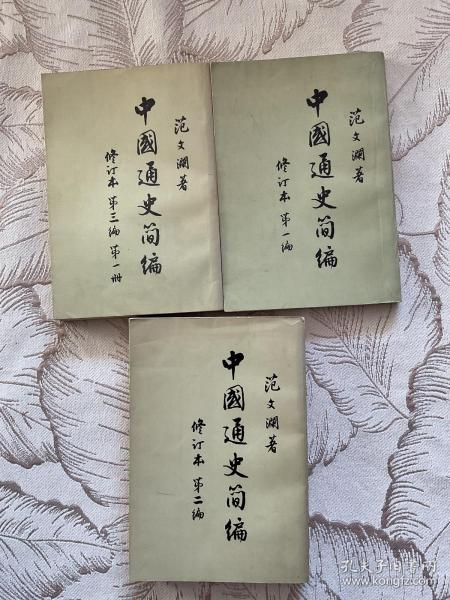 范文瀾著
中國通史简编
修订本 第三编 第一册
范文瀾著
中國通史简编
修订本 第一编
范文瀾著
中國通史简编
修订本 第二编
孔夫子旧书网
www.kongfz.com